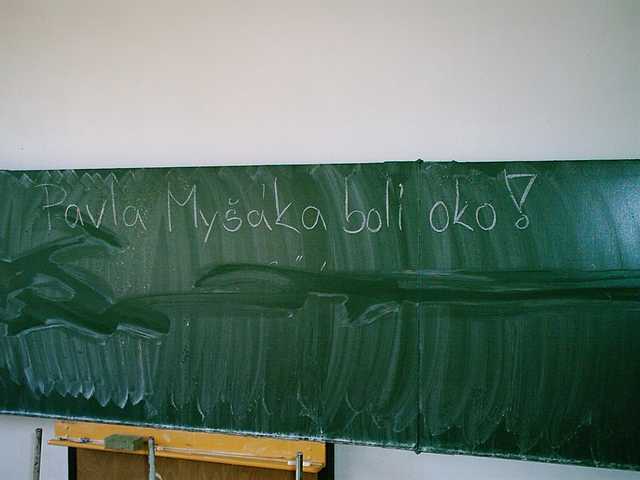 Pavla Myšáka bolí oko!